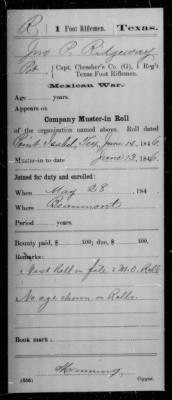 R 1 Foot Riflemen. Texas.
Jno P. Ridgeway
Pvt., Capt. Cheshier's Co. (G), 1 Reg't
Texas Foot Riflemen.
Mexican War.
Age years.
Appears on
Company Muster-in Roll
of the organization named above. Roll dated
Point Isabel, Tex, June 13, 1846
Muster-in to date June 13, 1846.
Joined for duty and enrolled:
When May 28, 184
Where Beaumont
Period years.
Bounty paid $ 100; due $ 100.
Remarks:
Next Roll on file is M.O. Roll
No age shown on Rolls.
Book mark:
(656) Copyist.